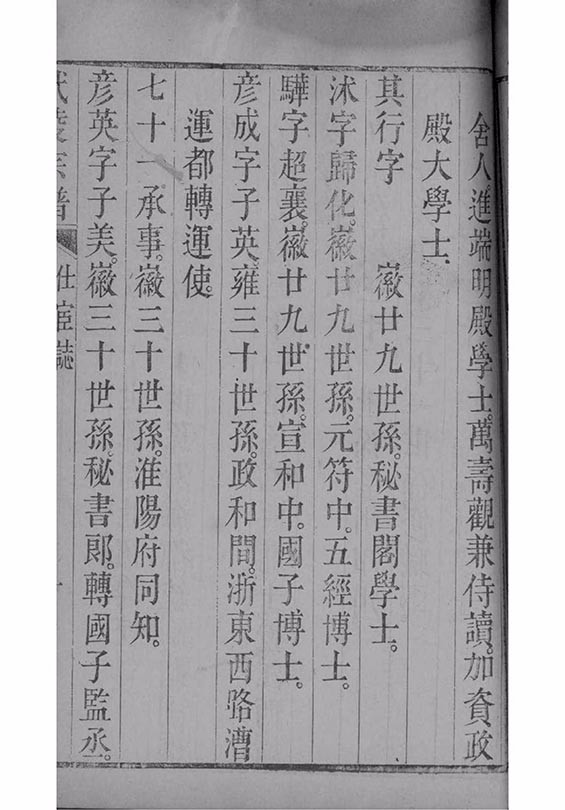 舍人進端明殿學士。萬壽觀兼侍讀。加資政
殿大學士
其行字　嶶廿九世孫。秘書閣學士。
沭字歸化。嶶廿九世孫。元符中。五經博士。
驊字超襄。嶶廿九世孫。宣和中。國子博士。
彦成字子英雍三十世孫。政和間。浙東西路漕
運都轉運使。
七十一承事。嶶三十世孫。淮陽府同知。
彦英字子美。嶶三十世孫。秘書郎。轉國子監丞。
仕宦誌